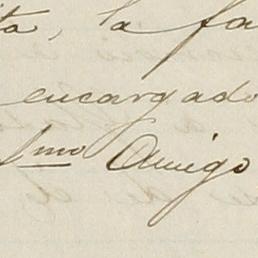 ta, la fa
encargado
mo Amigo